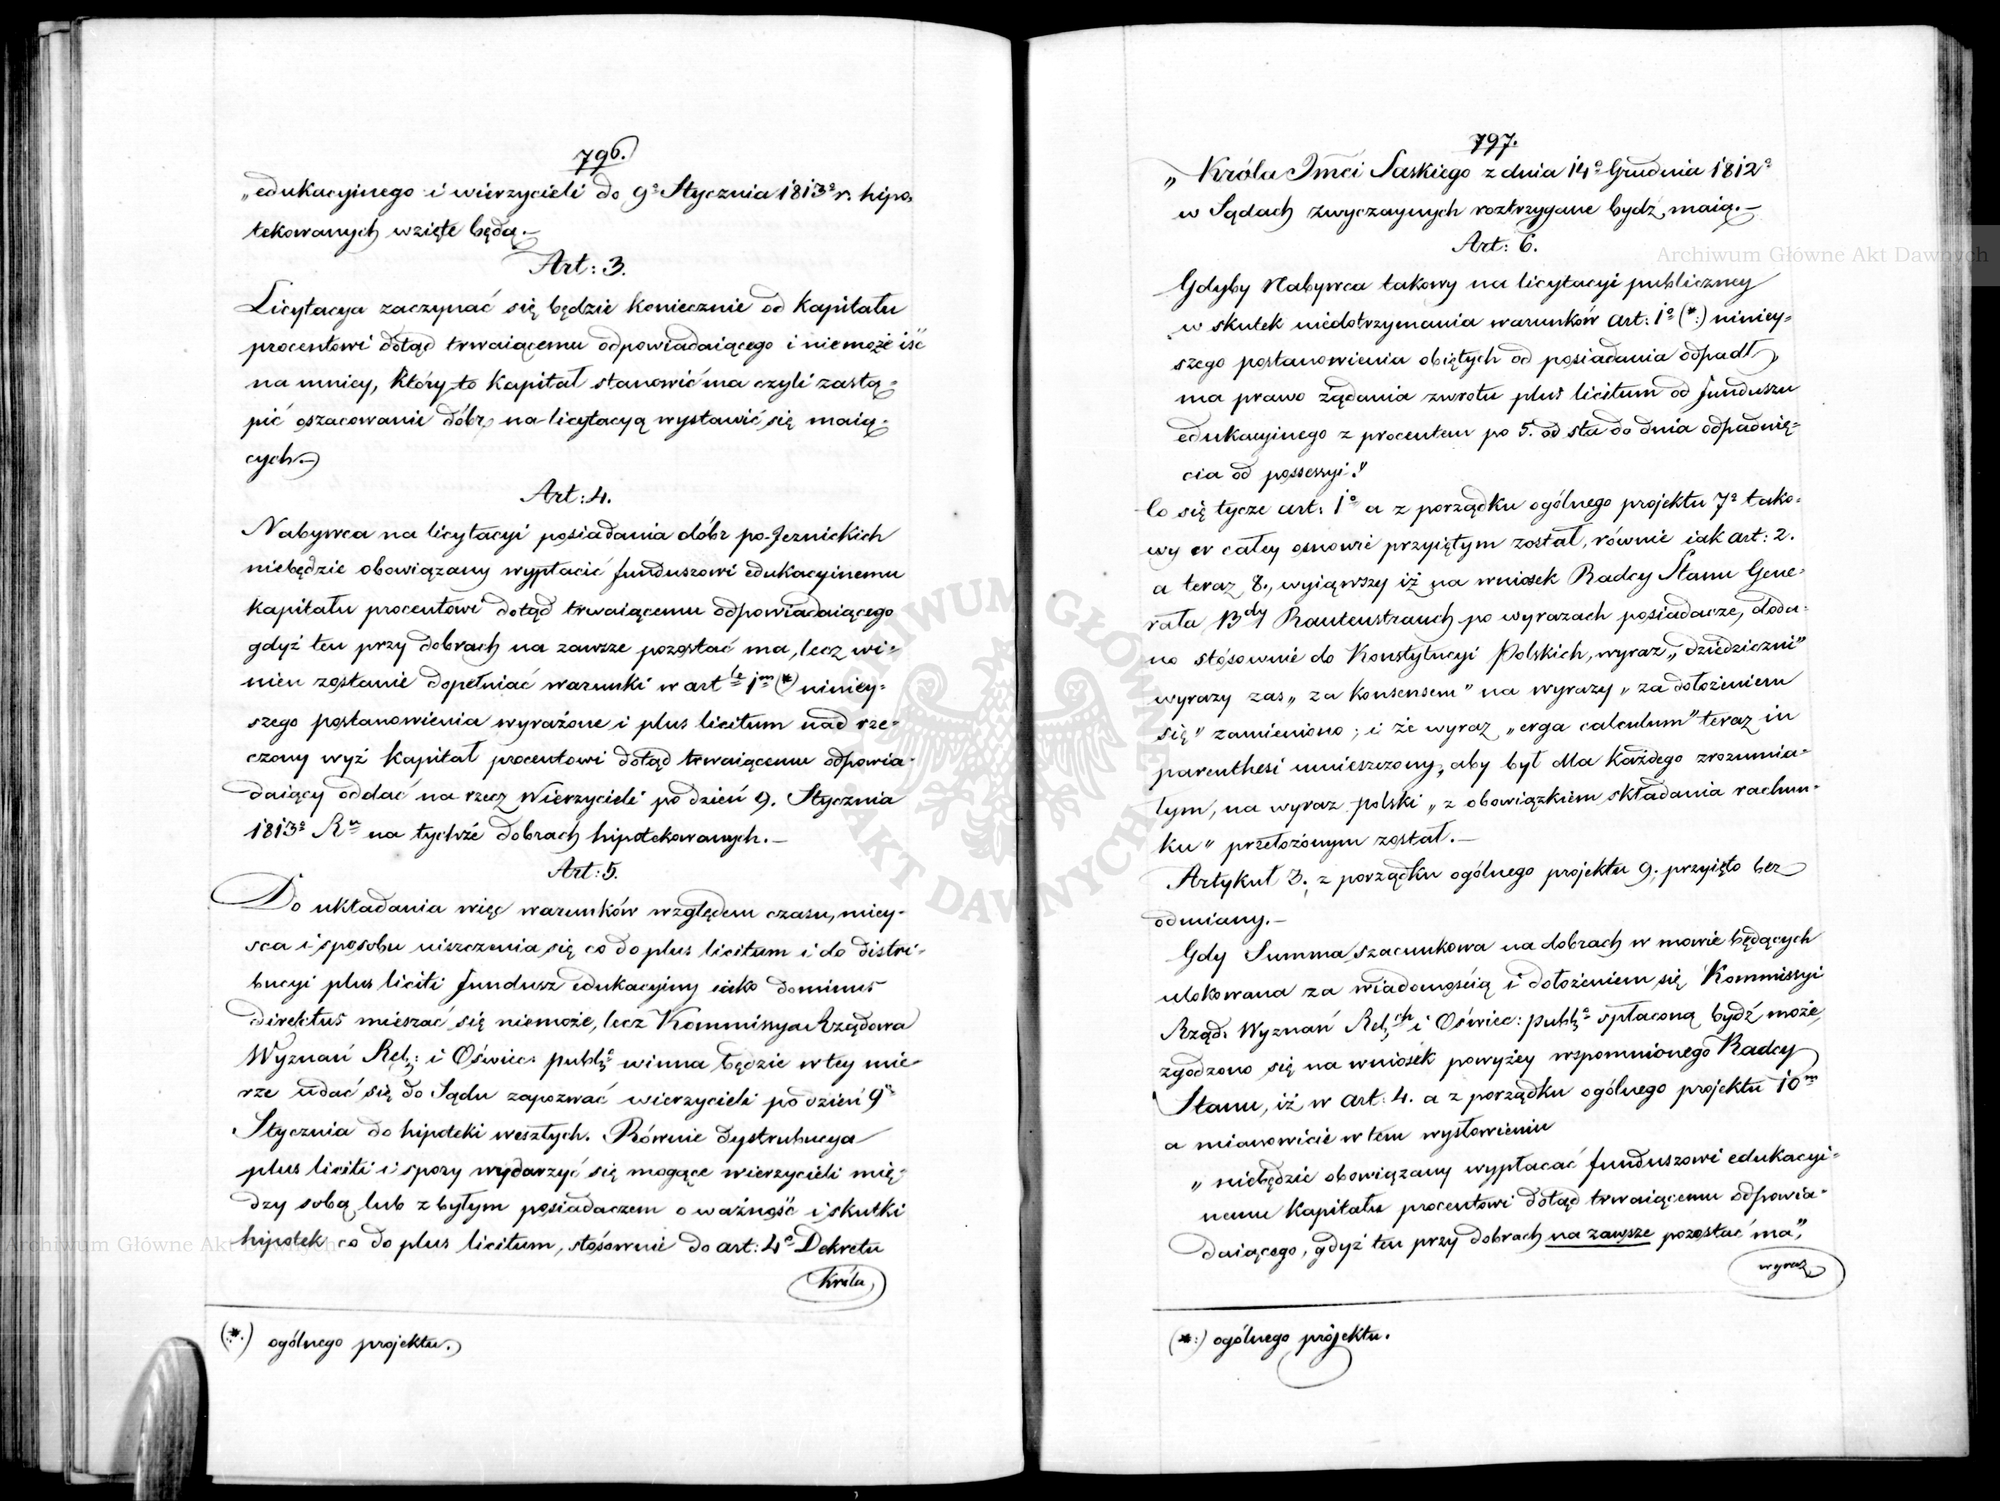 796.
„edukacyinego i wierzycieli do 9º Stycznia 1813º r. hipo-
tekowanych wzięte będą.—
Art: 3.
Licytacya zaczynać się będzie koniecznie od kapitału
procentowi dotąd trwaiącemu odpowiadaiącego i niemoże iść
na mniey, który to kapitał stanowić ma czyli zastą-
pić oszacowanie dóbr na licytacyą wystawić się maią-
cych.—
Art: 4.
Nabywca na licytacyi posiadania dóbr po-Jeznickich
niebędzie obowiązany wypłacić funduszowi edukacyinemu
kapitału procentowi dotąd trwaiącemu odpowiadaiącego
gdyż ten przy dobrach na zawsze pozostać ma, lecz wi-
nien zostanie dopełniać warunki w art le 1m (*) niniey-
szego postanowienia wyrażone i plus licitum nad rze-
czony wyż kapitał procentowi dotąd trwaiącemu odpowia-
daiący oddać na rzecz Wierzycieli po dzień 9. Stycznia
1813º Ru na tychże dobrach hipotekowanych.—
Art: 5.
Do układania więc warunków względem czasu, miey-
sca i sposobu uiszczenia się co do plus licitum i do distri-
bucyi plus liciti fundusz edukacyiny iako dominus
direktus mieszać się niemoże, lecz Kommissya Rządowa
Wyznań Rel: i Oświec: publ: winna będzie w tey mie-
rze udać się do Sądu zapozwać wierzycieli po dzień 9º
Stycznia do hipoteki weszłych. Równie dystrubucya
plus liciti i spory wydarzyć się mogące wierzycieli mię-
dzy sobą lub z byłym posiadaczem o ważność i skutki
hipotek co do plus licitum, stosownie do art: 4º Dekretu
Króla
(*) ogólnego projektu.
797.
„Króla Jmci Saskiego z dnia 14º Grudnia 1812º
w Sądach zwyczaynych roztrzygane bydź maią.—
Art: 6.
Gdyby Nabywca takowy na licytacyi publiczney
w skutek niedotrzymania warunków art: 1º (*:) niniey-
szego postanowienia obiętych od posiadania odpadł,
ma prawo żądania zwrotu plus licitum od funduszu
edukacyinego z procentem po 5. od sta do dnia odpadnię-
cia od possessyi."
Co się tycze art: 1º a z porządku ogólnego projektu 7º tako-
wy w całey osnowie przyiętym został, równie iak art: 2.
a teraz 8., wyiąwszy iż na wniosek Radcy Stanu Gene-
rała Bdy Rautenstrauch po wyrazach posiadacze, doda-
no stósownie do Konstytucyi Polskich, wyraz „dziedziczni"
wyrazy zaś „za konsensem" na wyrazy „za dołożeniem
się" zamieniono; i że wyraz „erga calculum" teraz in
parenthesi umieszczony, aby był dla każdego zrozumia-
łym, na wyraz polski „z obowiązkiem składania rachun-
ku" przełożonym został.—
Artykuł 3. z porządku ogólnego projektu 9. przyięto bez
odmiany.—
Gdy Summa szacunkowa na dobrach w mowie będących
ulokowana za wiadomością i dołożeniem się Kommissyi
Rząd: Wyznań Rel:ch i Oświec: publ: spłaconą bydź może,
zgodzono się na wniosek powyżey wspomnionego Radcy
Stanu, iż w art: 4. a z porządku ogólnego projektu 10m
a mianowicie w tem wysłowieniu
„niebędzie obowiązany wypłacać funduszowi edukacyi-
nemu kapitału procentowi dotąd trwaiącemu odpowia-
daiącego, gdyż ten przy dobrach na zawsze pozostać ma",
wyraz
(*:) ogólnego projektu.
Archiwum Główne Akt Dawnych
Archiwum Główne Akt Dawnych
ARCHIWUM GŁÓWNE AKT DAWNYCH